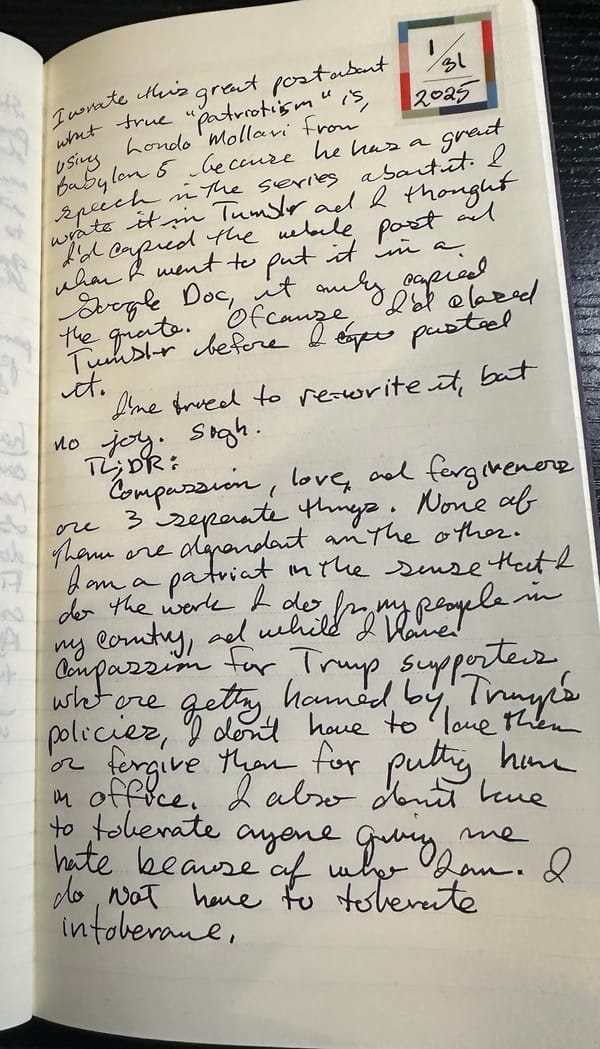 1/31
2025
I wrote this great post about
what true "patriotism" is,
using Londo Mollari from
Babylon 5 because he has a great
speech in the series about it. I
wrote it in Tumblr ad I thought
I'd copied the whole post ad
when I went to put it in a
Google Doc, it only copied
the quote. Of course, I'd closed
Tumblr before I pasted
it.
I've tried to re-write it, but
no joy. Sigh.
TL;DR:
Compassion, love, ad forgiveness
are 3 seperate things. None of
them are dependant on the other.
I am a patriot in the sense that I
do the work I do for my people in
my country, ad while I have
compassion for Trump supporters
who are getting harmed by Trump's
policies, I don't have to love them
or forgive them for putting him
in office. I also don't have
to tolerate anyone giving me
hate because of who I am. I
do NOT have to tolerate
intolerance.